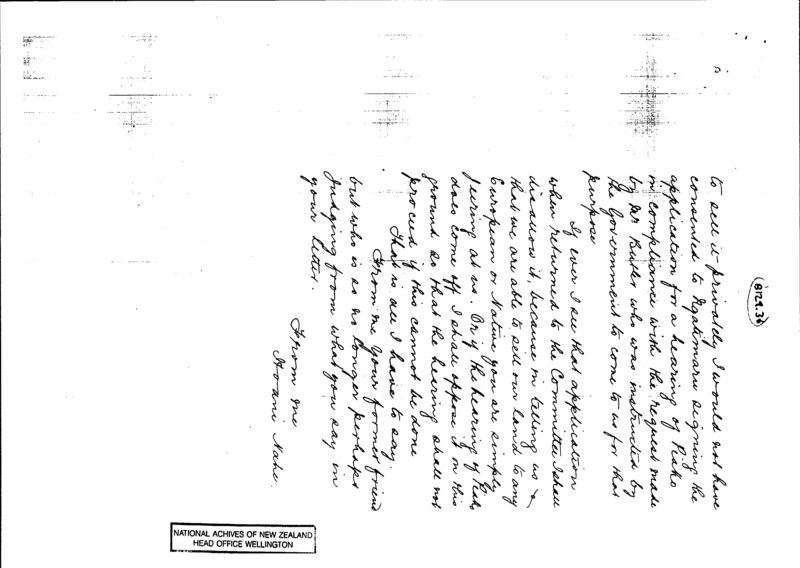 8129.36
to sell it privately I would not have
consented to Ngakmaru signing the
application for a hearing of Piako
in compliance with the request made
by Mr Butler who was instructed by
the Government to come to us for that
purpose
If ever I see that application
when returned to the Committee I shall
disallow it, because in telling us
that we are able to sell our land to any
European or Native you are simply
jeering at us. Or if the hearing of Piako
does come off I shall oppose it on this
ground so that the hearing shall not
proceed if this cannot be done
That is all I have to say.
From me your former friend
but who is so no longer perhaps
judging from what you say in
your letter.
From me
Hoani Nahe.
NATIONAL ACHIVES OF NEW ZEALAND
HEAD OFFICE WELLINGTON